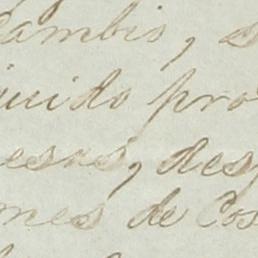 Cambio, s
quido pro
esas, des
mes de Cos